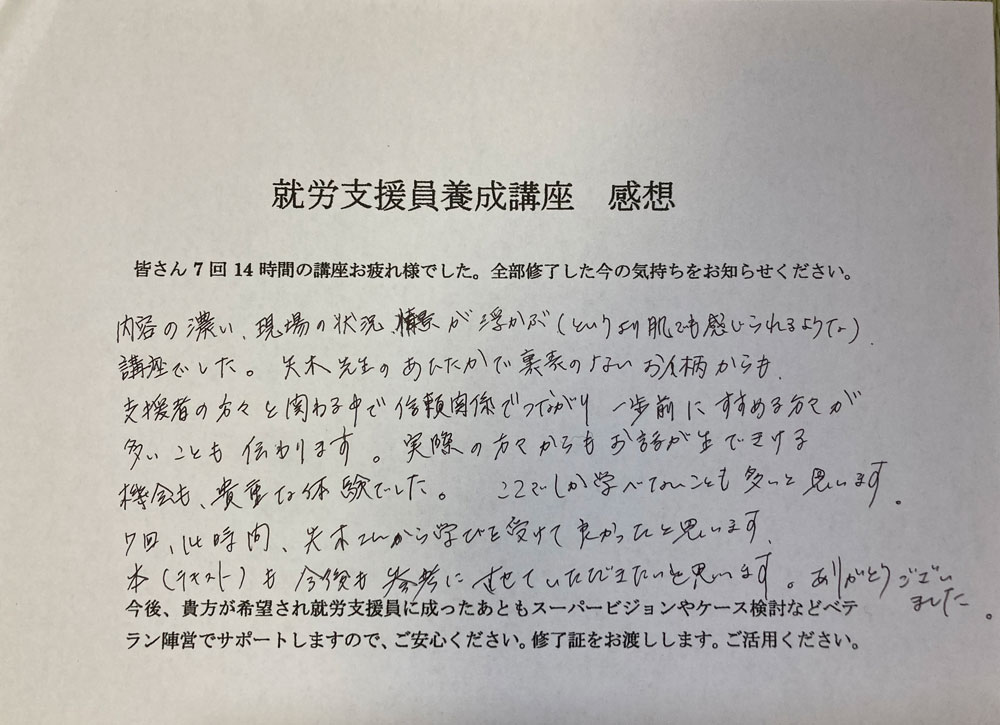 就労支援員養成講座　感想
皆さん 7 回 14 時間の講座お疲れ様でした。全部修了した今の気持ちをお知らせください。
内容の濃い、現場の状況、が浮かぶ(というより肌でも感じられるような)
講座でした。矢木先生のあたたかで裏表のないお人柄からも
支援者の方々と関わる中で信頼関係でつながり一歩前にすすめる方々が
多いことも伝わります。実際の方々からもお話が生できける
機会も、貴重な体験でした。ここでしか学べないことも多いと思います。
7回、14時間、矢木さんから学びを受けて良かったと思います。
本(テキスト)も今後も参考にさせていただきたいと思います。ありがとうござい
ました。
今後、貴方が希望され就労支援員に成ったあともスーパービジョンやケース検討などベテ
ラン陣営でサポートしますので、ご安心ください。修了証をお渡しします。ご活用ください。